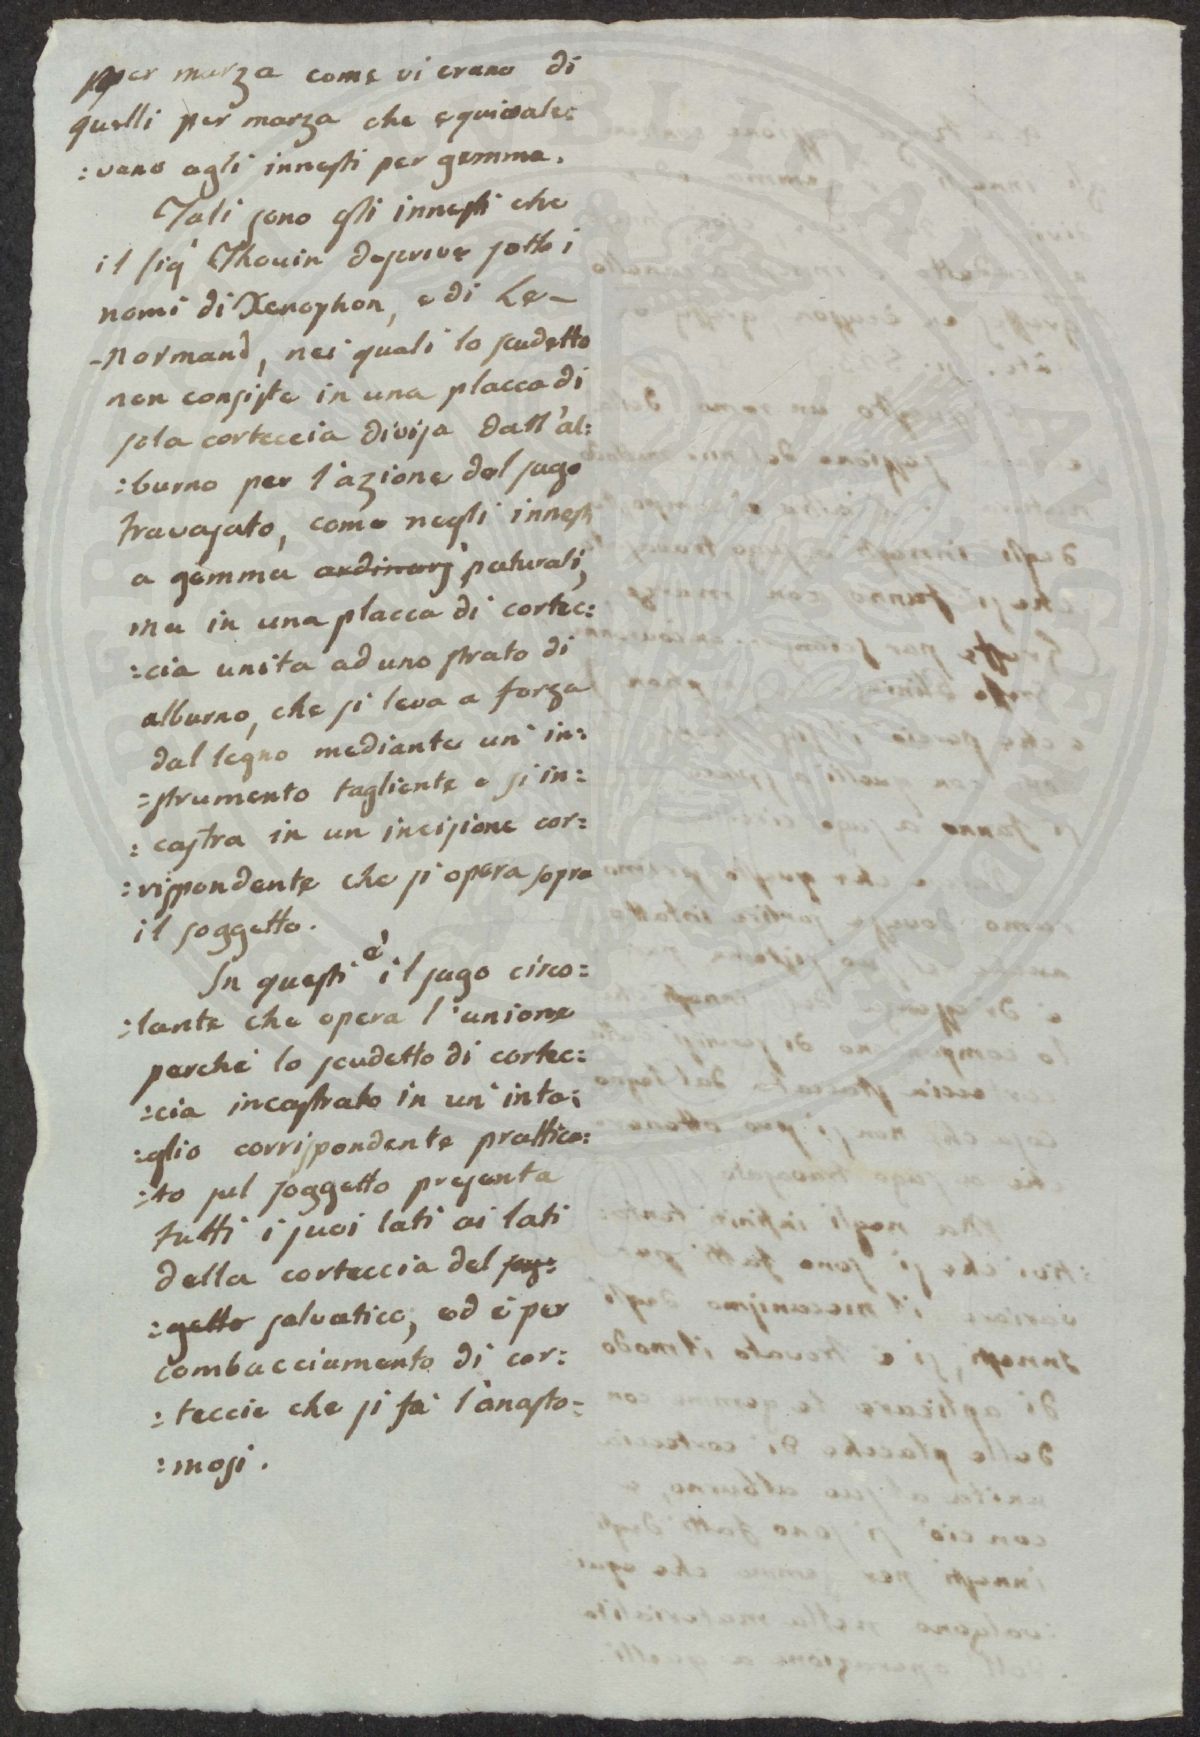 per marza come vi erano di
quelli per marza che equivale:
:vano agli innesti per gemma.
Tali sono gli innesti che
il Sig.r Thouin descrive sotto i
nomi di Xenophon, e di Le-
-Normand, nei quali lo scudetto
non consiste in una placca di
sola corteccia divisa dall'al:
:burno per l'azione del sugo
travasato, come negli innesti
a gemma ordinarj naturali,
ma in una placca di cortec:
:cia unita ad uno strato di
alburno, che si leva a forza
dal legno mediante un' in:
:strumento tagliente e si in:
:castra in un incisione cor:
:rispondente che si opera sopra
il soggetto.
In questi è il sugo circo:
:lante che opera l'unione
perchè lo scudetto di cortec:
:cia incastrato in un' inta:
:glio corrispondente prattica:
:to sul soggetto presenta
tutti i suoi lati ai lati
della corteccia del sog:
:getto salvatico, ed è per
combacciamento di cor:
:teccie che si fa l'anasto:
:mosi.